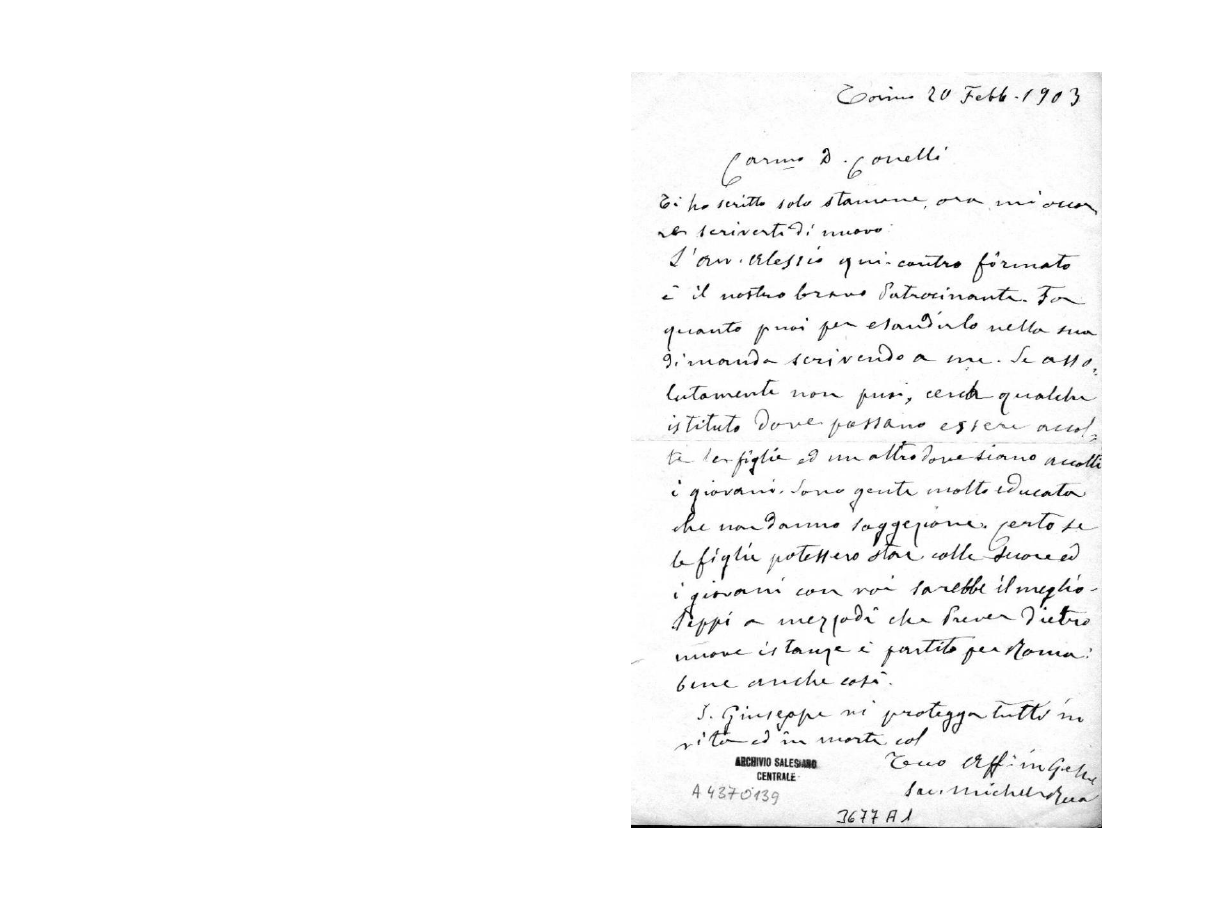 Torino 20 Febb. 1903
Carmo D. Conelli
Ti ho scritto solo stamane, ora mi occor
re scriverti di nuovo.
L'avv. Alessio qui-contro firmato
è il nostro bravo Patrocinante. Fa
quanto puoi per esaudirlo nella sua
dimanda scrivendo a me. Se asso-
lutamente non puoi, cerca qualche
istituto dove possano essere accol-
te le figlie ed un altro dove siano accolti
i giovani. Sono gente molto educata
che non danno soggezione. Certo se
le figlie potessero star colle Suore ed
i giovani con voi sarebbe il meglio.
Seppi a mezzodì che Prever dietro
nuove istanze è partito per Roma:
bene anche così.
S. Giuseppe vi protegga tutti in
vita ed in morte col
Tuo Aff. in G. e M.
Sac. Michele Rua
ARCHIVIO SALESIANO
CENTRALE
A 4370139
3677 A1